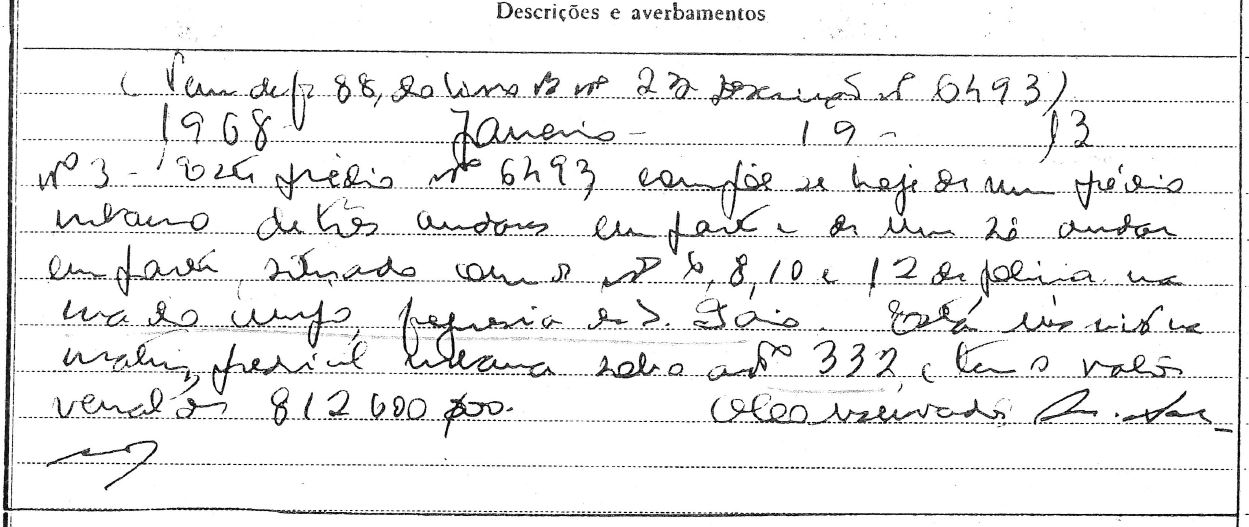 Descrições e averbamentos
(Vem de f. 88, do livro B nº 22 descrição nº 6493)
1968 Janeiro - 19 - 13
nº 3 - Este prédio nº 6493, compõe se hoje de um prédio
urbano de três andares em parte e de um só andar
em parte, situado com os nº 6, 8, 10 e 12 de polícia na
rua do, freguesia de S.. Está inscrito na
matriz predial urbana sob o artº 332, e tem o valor
venal de 812 600$00. O Conservador,